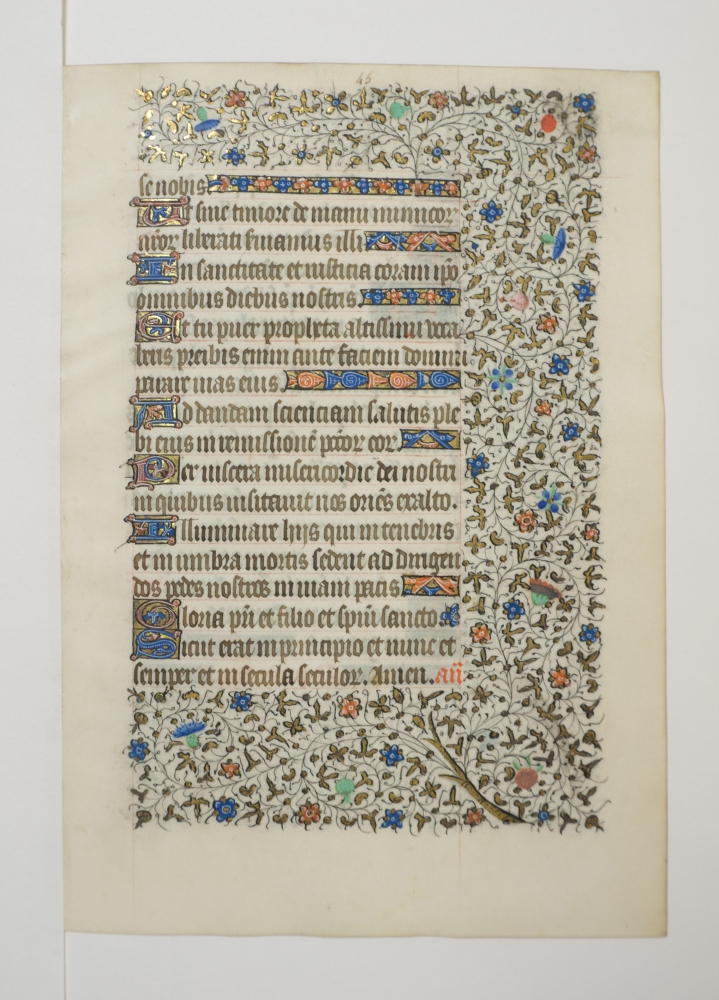 45
se nobis
Ut sine timore de manu inimicor
nror liberati seruiamus illi
In sanctitate et iusticia coram ipo
omnibus diebus nostris.
Et tu puer propheta altissimi voca
beris preibis enim ante faciem domini
parare uias eius.
Ad dandam scienciam salutis ple
bi eius in remissionē pctor eor.
Per uiscera misericordie dei nostri
in quibus uisitauit nos oriēs exalto.
Illuminare hijs qui in tenebris
et in umbra mortis sedent ad dirigen
dos pedes nostros in uiam pacis
Gloria pri et filio et spiū sancto
Sicut erat in principio et nunc et
semper et in secula seculor. Amen. an̄